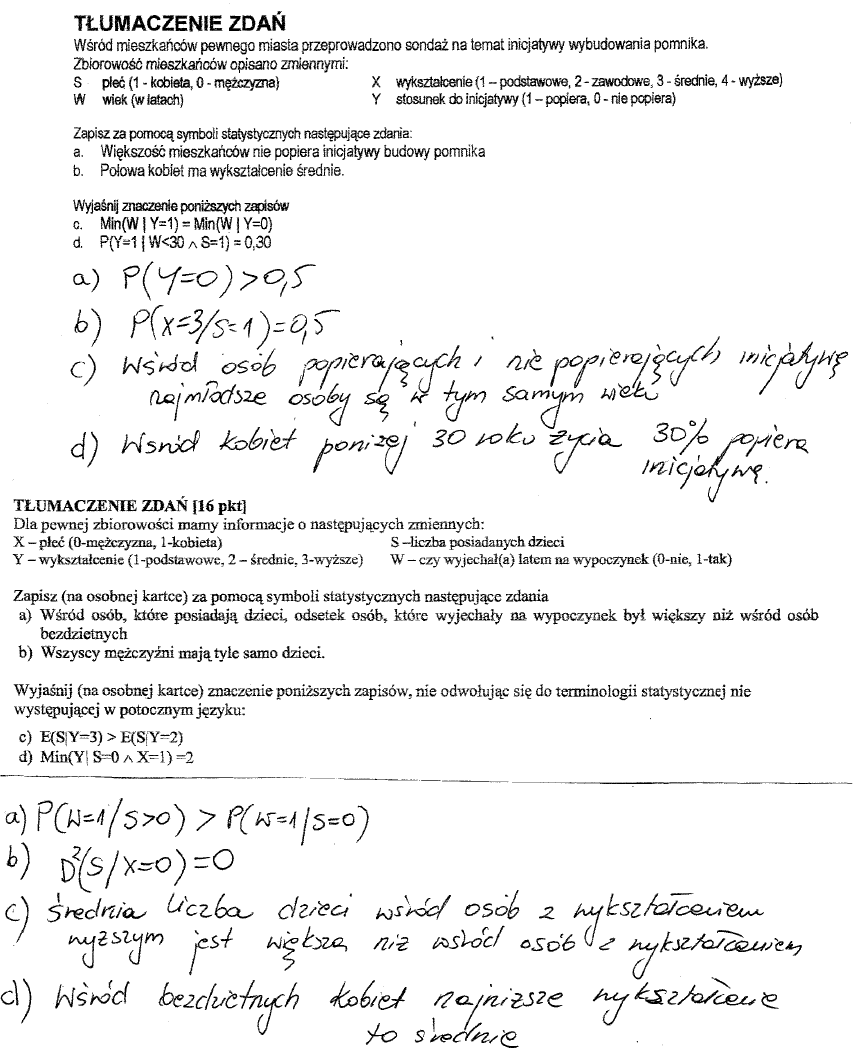 TŁUMACZENIE ZDAŃ
Wśród mieszkańców pewnego miasta przeprowadzono sondaż na temat inicjatywy wybudowania pomnika.
Zbiorowość mieszkańców opisano zmiennymi:
S płeć (1 - kobieta, 0 - mężczyzna) X wykształcenie (1 – podstawowe, 2 - zawodowe, 3 - średnie, 4 - wyższe)
W wiek (w latach) Y stosunek do inicjatywy (1 – popiera, 0 - nie popiera)
Zapisz za pomocą symboli statystycznych następujące zdania:
a. Większość mieszkańców nie popiera inicjatywy budowy pomnika
b. Połowa kobiet ma wykształcenie średnie.
Wyjaśnij znaczenie poniższych zapisów
c. Min(W | Y=1) = Min(W | Y=0)
d. P(Y=1 | W<30 ∧ S=1) = 0,30
a) P(Y=0)>0,5
b) P(X=3/S=1)=0,5
c) Wśród osób popierających i nie popierających inicjatywę
najmłodsze osoby są w tym samym wieku
d) Wśród kobiet poniżej 30 roku życia 30% popiera
inicjatywę.
TŁUMACZENIE ZDAŃ [16 pkt]
Dla pewnej zbiorowości mamy informacje o następujących zmiennych:
X – płeć (0-mężczyzna, 1-kobieta) S –liczba posiadanych dzieci
Y – wykształcenie (1-podstawowe, 2 – średnie, 3-wyższe) W – czy wyjechał(a) latem na wypoczynek (0-nie, 1-tak)
Zapisz (na osobnej kartce) za pomocą symboli statystycznych następujące zdania
a) Wśród osób, które posiadają dzieci, odsetek osób, które wyjechały na wypoczynek był większy niż wśród osób
bezdzietnych
b) Wszyscy mężczyźni mają tyle samo dzieci.
Wyjaśnij (na osobnej kartce) znaczenie poniższych zapisów, nie odwołując się do terminologii statystycznej nie
występującej w potocznym języku:
c) E(S|Y=3) > E(S|Y=2)
d) Min(Y| S=0 ∧ X=1) =2
a) P(W=1/S>0) > P(W=1/S=0)
b) D²(S/X=0)=0
c) Średnia liczba dzieci wśród osób z wykształceniem
wyższym jest większa niż wśród osób z wykształceniem
d) Wśród bezdzietnych kobiet najniższe wykształcenie
to średnie